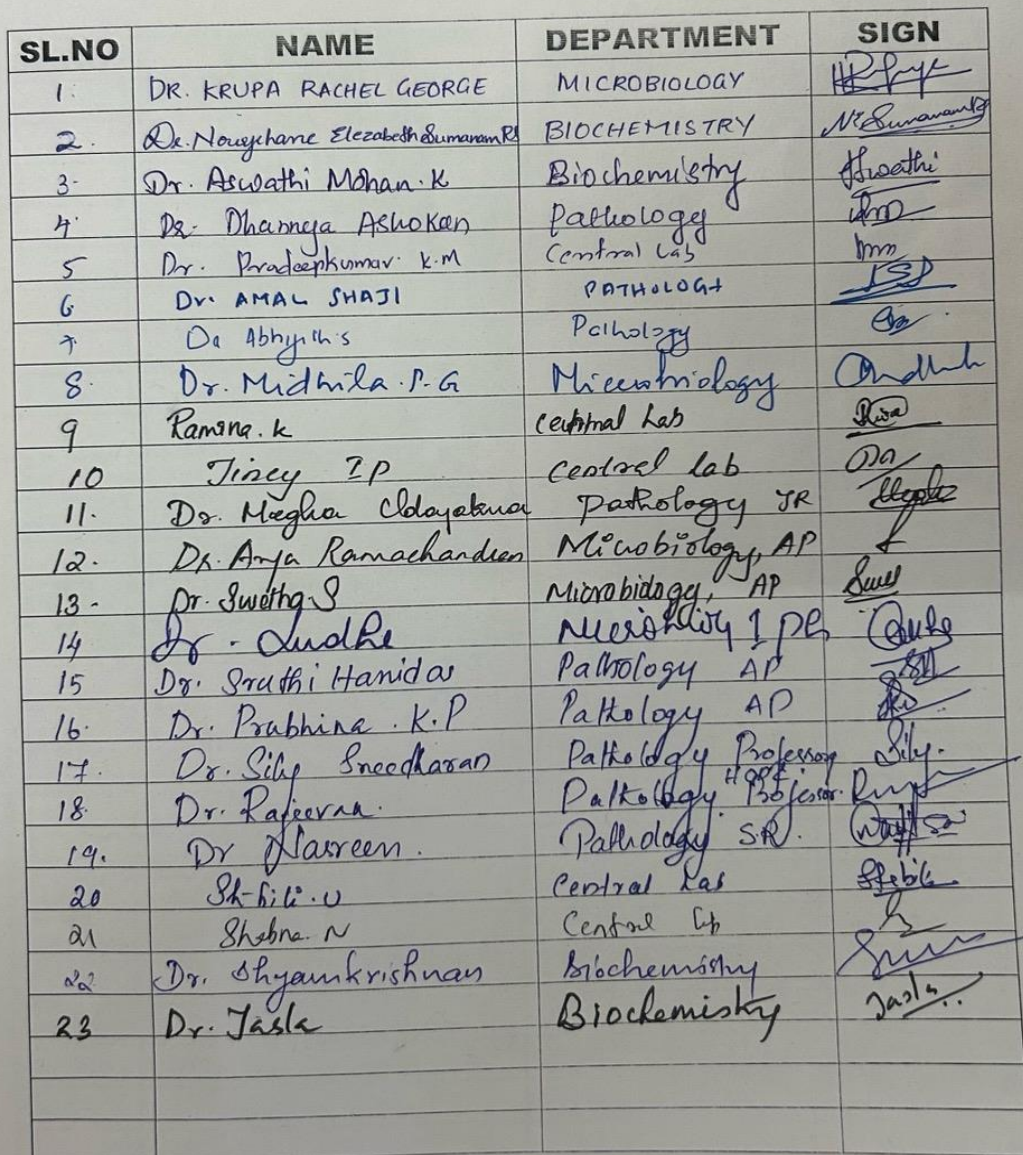 SL.NO NAME DEPARTMENT SIGN
1. DR. KRUPA RACHEL GEORGE MICROBIOLOGY
2. Dr. Elezabeth Sumanam BIOCHEMISTRY
3. Dr. Aswathi Mohan. K Biochemistry Aswathi
4. Dr. Dhannya Ashokan Pathology
5 Dr. Pradeepkumar K.M Central Lab
6. Dr. AMAL SHAJI PATHOLOGY
7 Pathology
8. Dr. Midhila. P. G Microbiology
9 Ramsna. k Central Lab
10 Jincy I P Central lab
11. Dr. Megha Pathology JR
12. Dr. Arya Ramachandran Microbiology, AP
13- Dr. Swetha. S Microbiology, AP
14 Dr.
15 Dr. Sruthi Haridas Pathology AP
16. Dr. Prabhina. K.P Pathology AP
17. Dr. Sily Sreedharan Pathology Professor Sily.
18. Dr. Rajeevan. Pathology Professor.
19. Dr Nasreen. Pathology SR.
20 Central Lab
21 Shabna. N Central Lab
22 Dr. Shyamkrishnan Biochemistry
23 Dr. Jasla Biochemistry Jasla